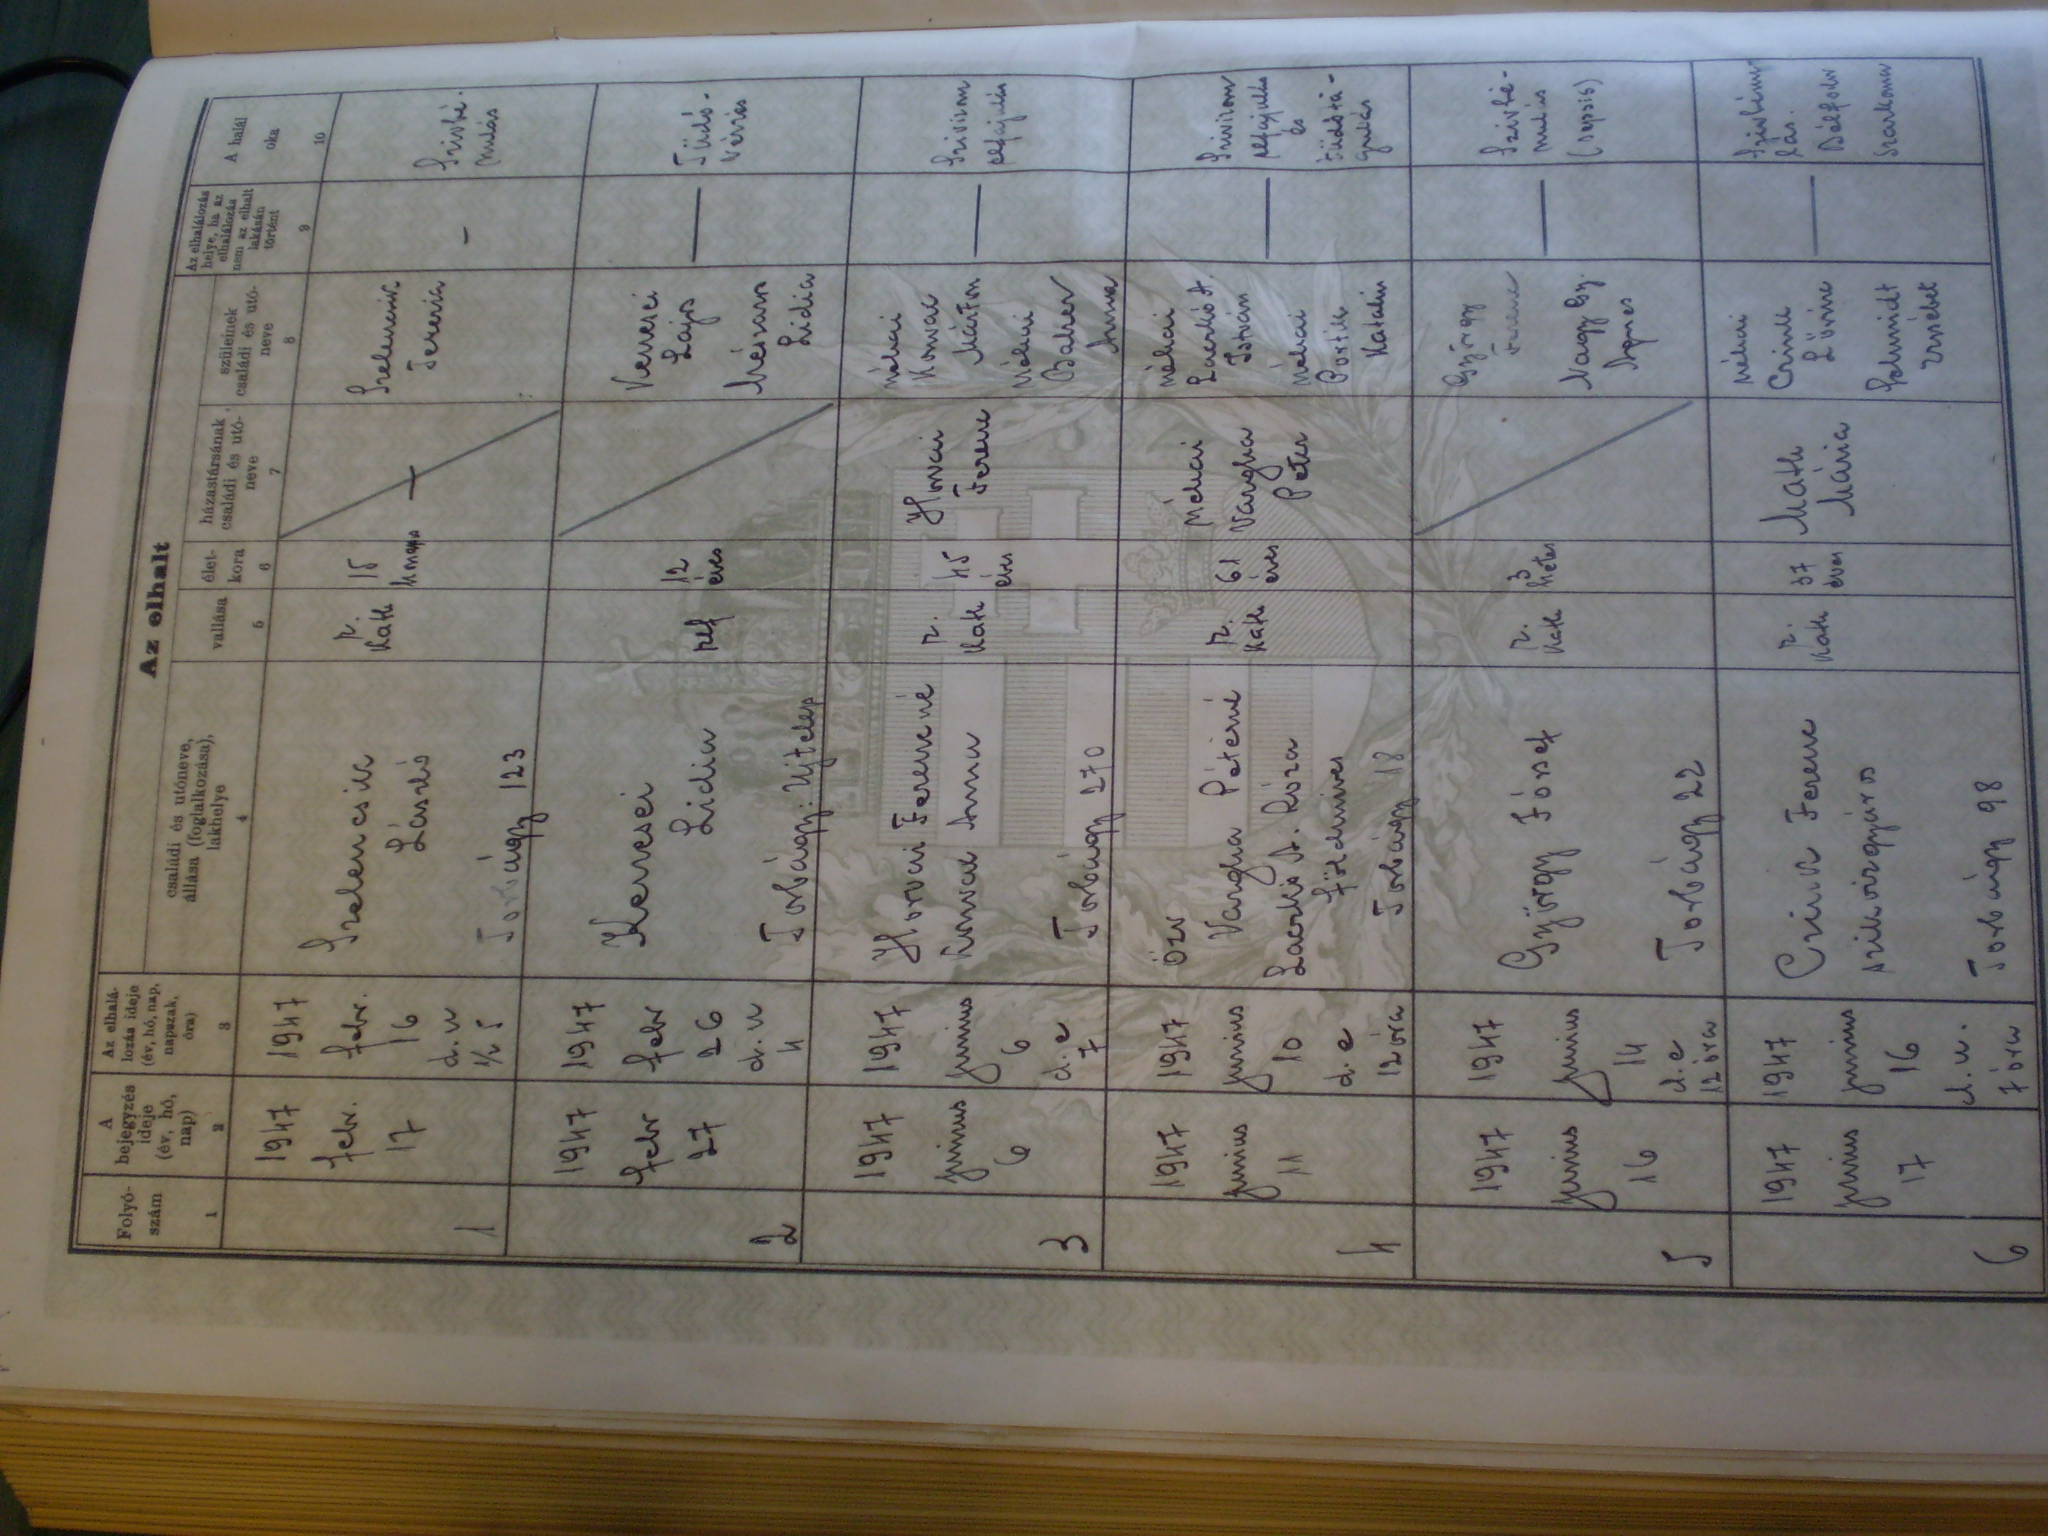 Az elhalt
Folyó-
szám
A
bejegyzés
ideje
(év, hó,
nap)
Az elhalá-
lozás ideje
(év, hó, nap,
napszak,
óra)
családi és utóneve,
állása (foglalkozása),
lakhelye
vallása
élet-
kora
házastársának
családi és utó-
neve
szüleinek
családi és utó-
neve
Az elhalálozás
helye, ha az
elhalálozás
nem az elhalt
lakásán
történt
A halál
oka
1
2
3
4
5
6
7
8
9
10
1
1947
febr.
17
1947
febr.
16
d. u
1/2 5
Szelencsik
László
Torbágy 123
r.
kath
15
hónapos
—
Szelencsik
Terezia
-
Szivbé-
nulás
2
1947
febr
27
1947
febr
26
d. u
4
Kevesei
Lidia
Torbágy: Ujtelep
ref
12
éves
Kevesei
Lajos
Mészáros
Lidia
—
Tüdő-
vérzés
3
1947
junius
6
1947
junius
6
d. e
7
Horvai Ferencné
Anna
Torbágy 270
r.
kath
45
éves
Horvai
Ferenc
néhai
Márton
néhai
Anna
—
Szivizom
elfajulás
4
1947
junius
11
1947
junius
10
d. e
12 óra
Özv
Vargha Péterné
Laczkó A. Róza
földmüves
Torbágy 18
r.
kath
61
éves
néhai
Vargha
Péter
néhai
Laczkó A.
István
néhai
Katalin
—
Szivizom
elfajulás
és
tüdőtá-
gulás
5
1947
junius
16
1947
junius
14
d. e
12 óra
György József
Torbágy 22
r.
kath
3
hetes
György
Ferenc
Nagy Gy.
Agnes
—
Szivbé-
nulás
(sepsis)
6
1947
junius
17
1947
junius
16
d. u.
7 óra
Ferenc
szikvizgyáros
Torbágy 98
r.
kath
37
éves
Math
Mária
néhai
Lőrinc
Schmidt
Erzsébet
—
Szivbénu-
lás.
Bélfodor
szarkoma